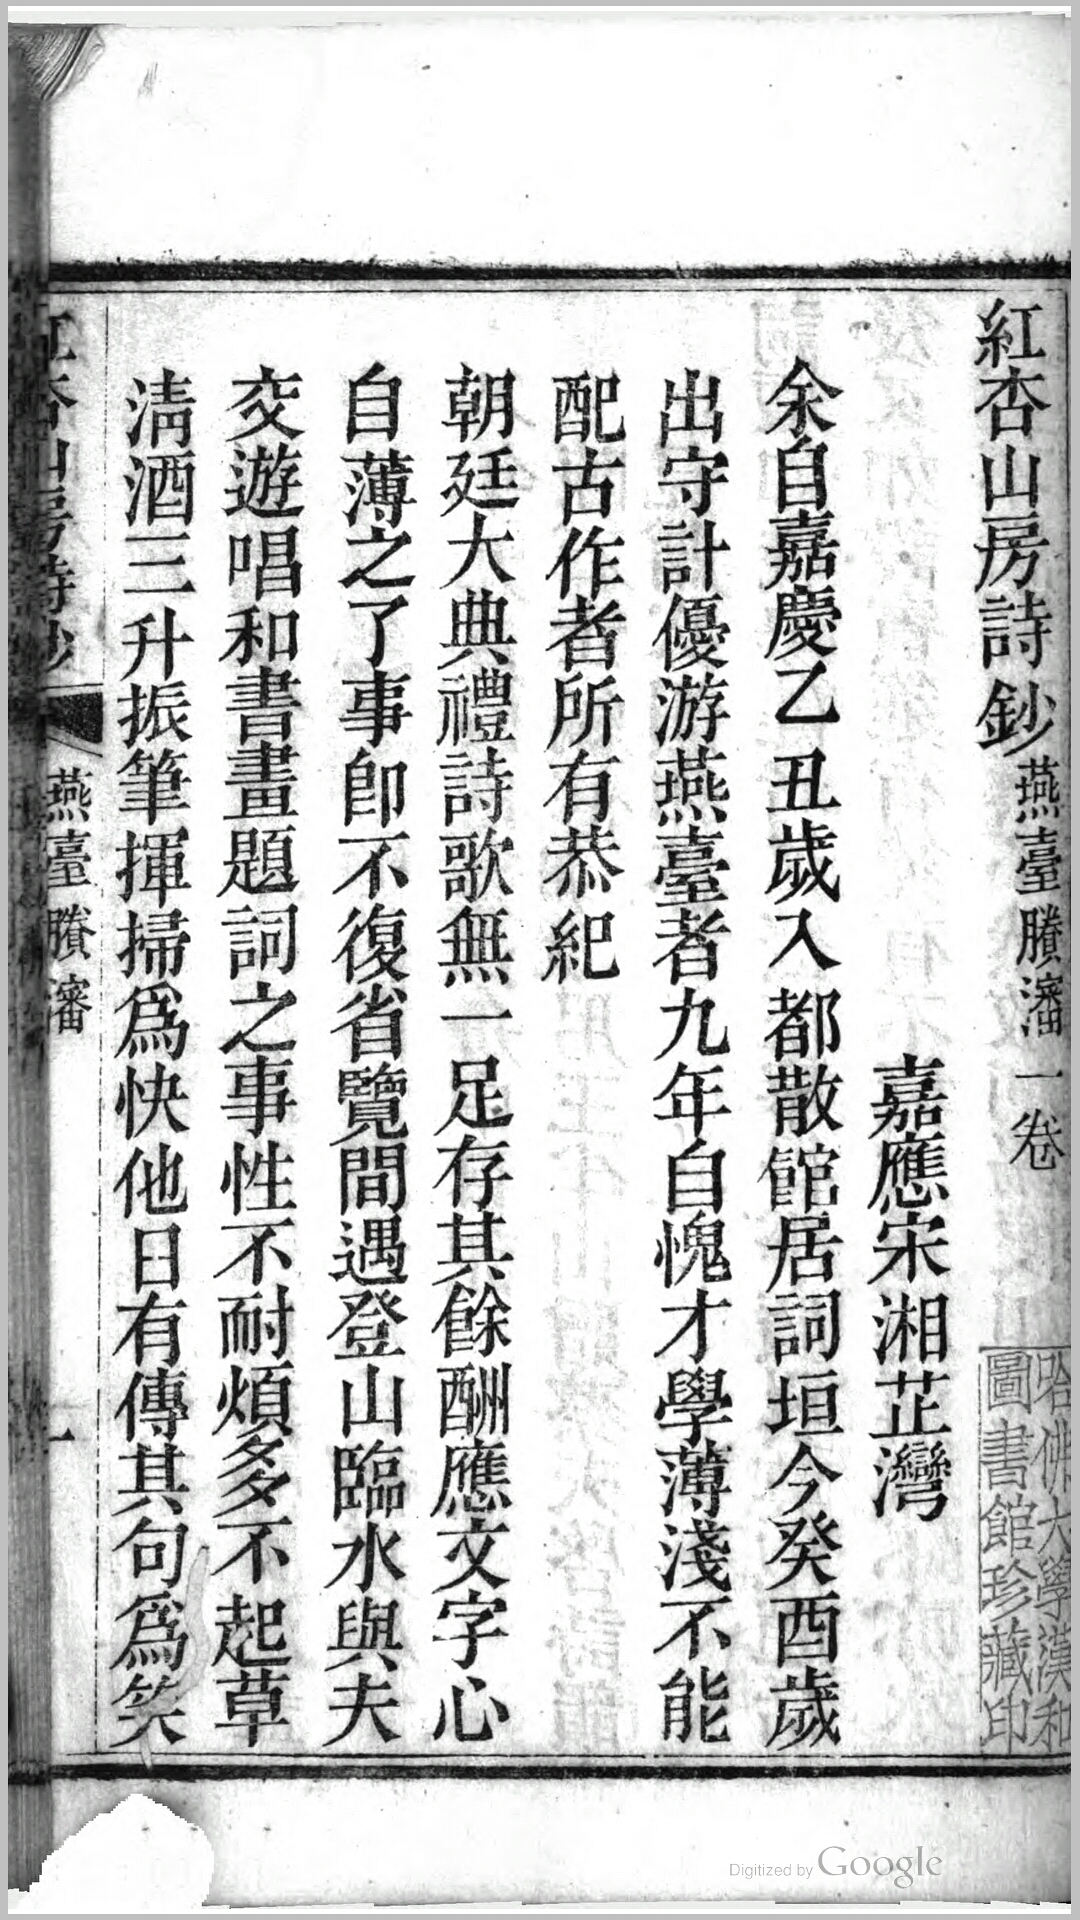 紅杏山房詩鈔燕臺賸瀋一卷
嘉應宋湘芷灣
余自嘉慶乙丑歲入都散館居詞垣今癸酉歲
出守計優游燕臺者九年自愧才學薄淺不能
配古作者所有恭紀
朝廷大典禮詩歌無一足存其餘酬應文字心
自薄之了事卽不復省覽間遇登山臨水與夫
交遊唱和書畫題詞之事性不耐煩多不起草
淸酒三升振筆揮掃爲快他日有傳其句爲笑
紅杏山房詩鈔
燕臺賸瀋
一
哈佛大學漢和
圖書館珍藏印
Digitized by Google